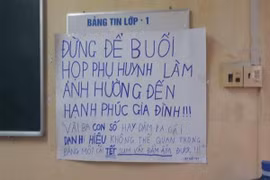 BẢNG TIN LỚP - 1
ĐỪNG ĐỂ BUỔI
HỌP PHỤ HUYNH LÀM
ẢNH HƯỞNG ĐẾN
HẠNH PHÚC GIA ĐÌNH!!!
VÀI BA CON SỐ HAY DĂM BA CÁI
DANH HIỆU KHÔNG THỂ QUAN TRỌNG
BẰNG MỘT CÁI TẾT SUM VẦY ĐẦM ẤM ĐƯỢC !!!